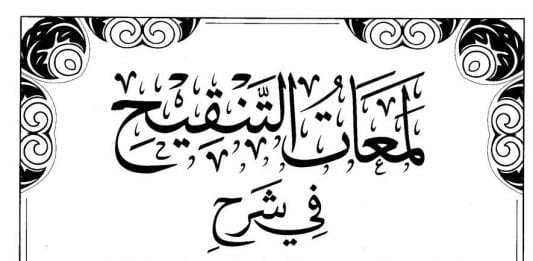 لَمَعَاتُ التَّنقِيحِ
فِي شَرحِ